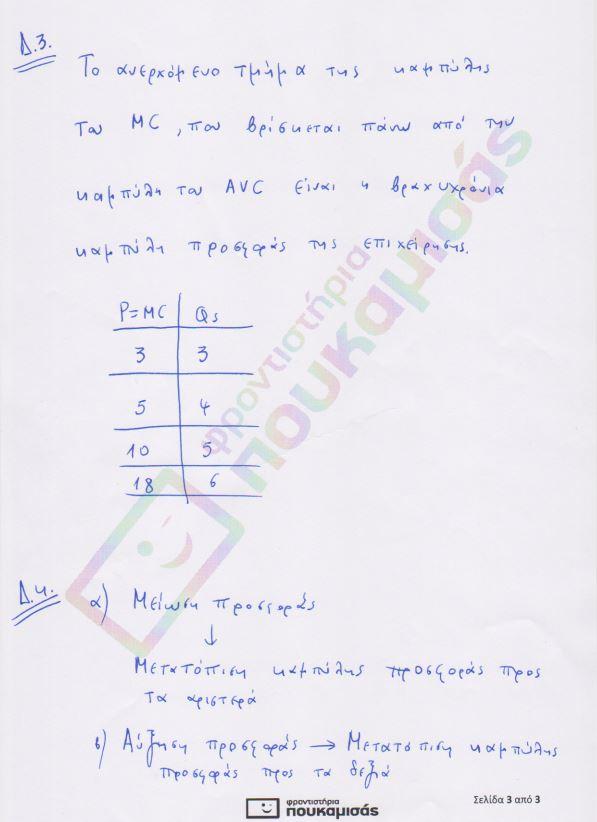 Δ.3.
Το ανερχόμενο τμήμα της καμπύλης
του MC, που βρίσκεται πάνω από την
καμπύλη του AVC είναι η βραχυχρόνια
καμπύλη προσφοράς της επιχείρησης.
P=MC Qs
3 3
5 4
10 5
18 6
Δ.4. α) Μείωση προσφοράς
↓
Μετατόπιση καμπύλης προσφοράς προς
τα αριστερά
β) Αύξηση προσφοράς → Μετατόπιση καμπύλης
προσφοράς προς τα δεξιά
φροντιστήρια
πουκαμισάς
φροντιστήρια
πουκαμισάς
Σελίδα 3 από 3